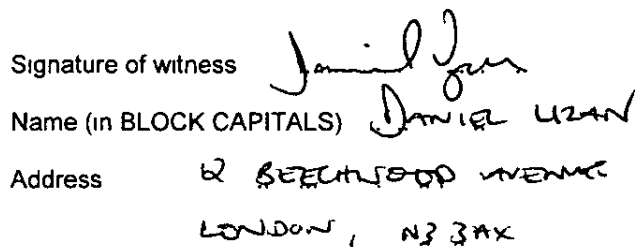 Signature of witness
Name (in BLOCK CAPITALS) DANIEL UZAN
Address 62 BEECHWOOD AVENUE
LONDON, N3 3AX